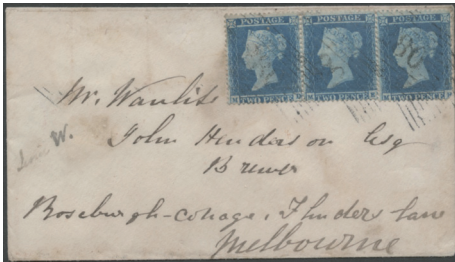 POSTAGE POSTAGE POSTAGE
TWO PENCE TWO PENCE TWO PENCE
Mr. Wanliss
W.
John Henderson Esq
Brewer
Roseburgh-cottage, Flinders lane
Melbourne